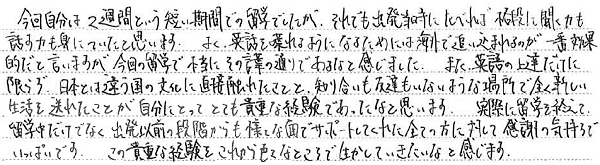 今回自分は2週間という短い期間での留学でしたが、それでも出発当時にくらべれば格段に聞く力も
話す力も身についたと思います。 よく、英語を喋れるようになるためには海外で追い込まれるのが一番効果
的だと言いますが、今回の留学で本当にその言葉の通りであるなと感じました。 また、英語の上達だけに
限らず、日本とは違う国の文化に直接触れたことと、知り合いも友達もいないような場所で全く新しい
生活を送れたことが自分にとってとても貴重な経験であったなと思います。 実際に留学を終えて、
留学中だけでなく出発以前の段階からも様々な面でサポートしてくれた全ての方に対して感謝の気持ちで
いっぱいです。 この貴重な経験をこれから色々なところで生かしていきたいなと感じます。